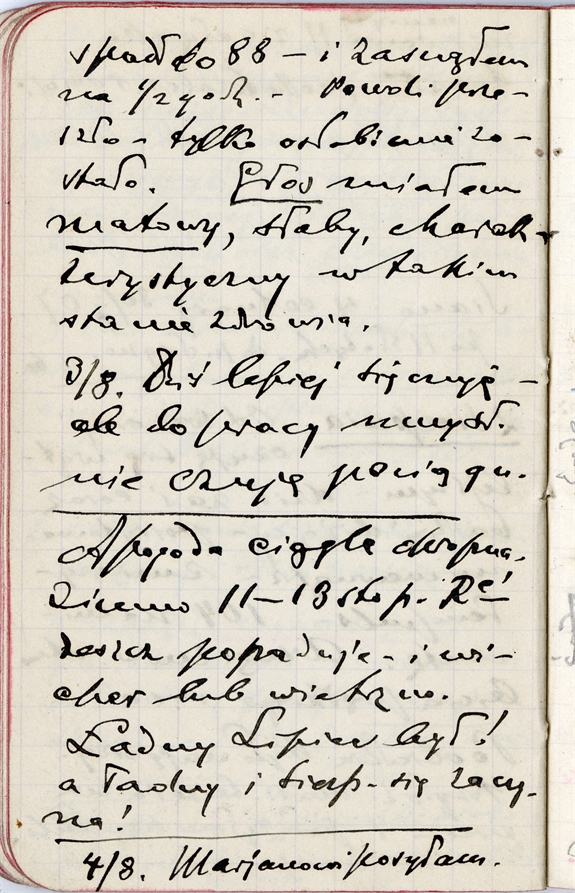 spadł do 88 – i zasnąłem
na 1/2 godz. – Powoli prze-
szło – tylko osłabienie zo-
stało. Głos miałem
matowy, słaby, charak-
terystyczny w takim
stanie zdrowia.
3/8. Dziś lepiej się czuję –
ale do pracy umysł.
nie czuję pociągu.
A pogoda ciągle okropna.
Zimno 11–13 stop. Ré –
deszcz popaduje – i wi-
cher lub wietrzno.
Ładny Lipiec był!
a ładny i Sierp. się zaczy-
na!
4/8. Marjanowi posyłam.